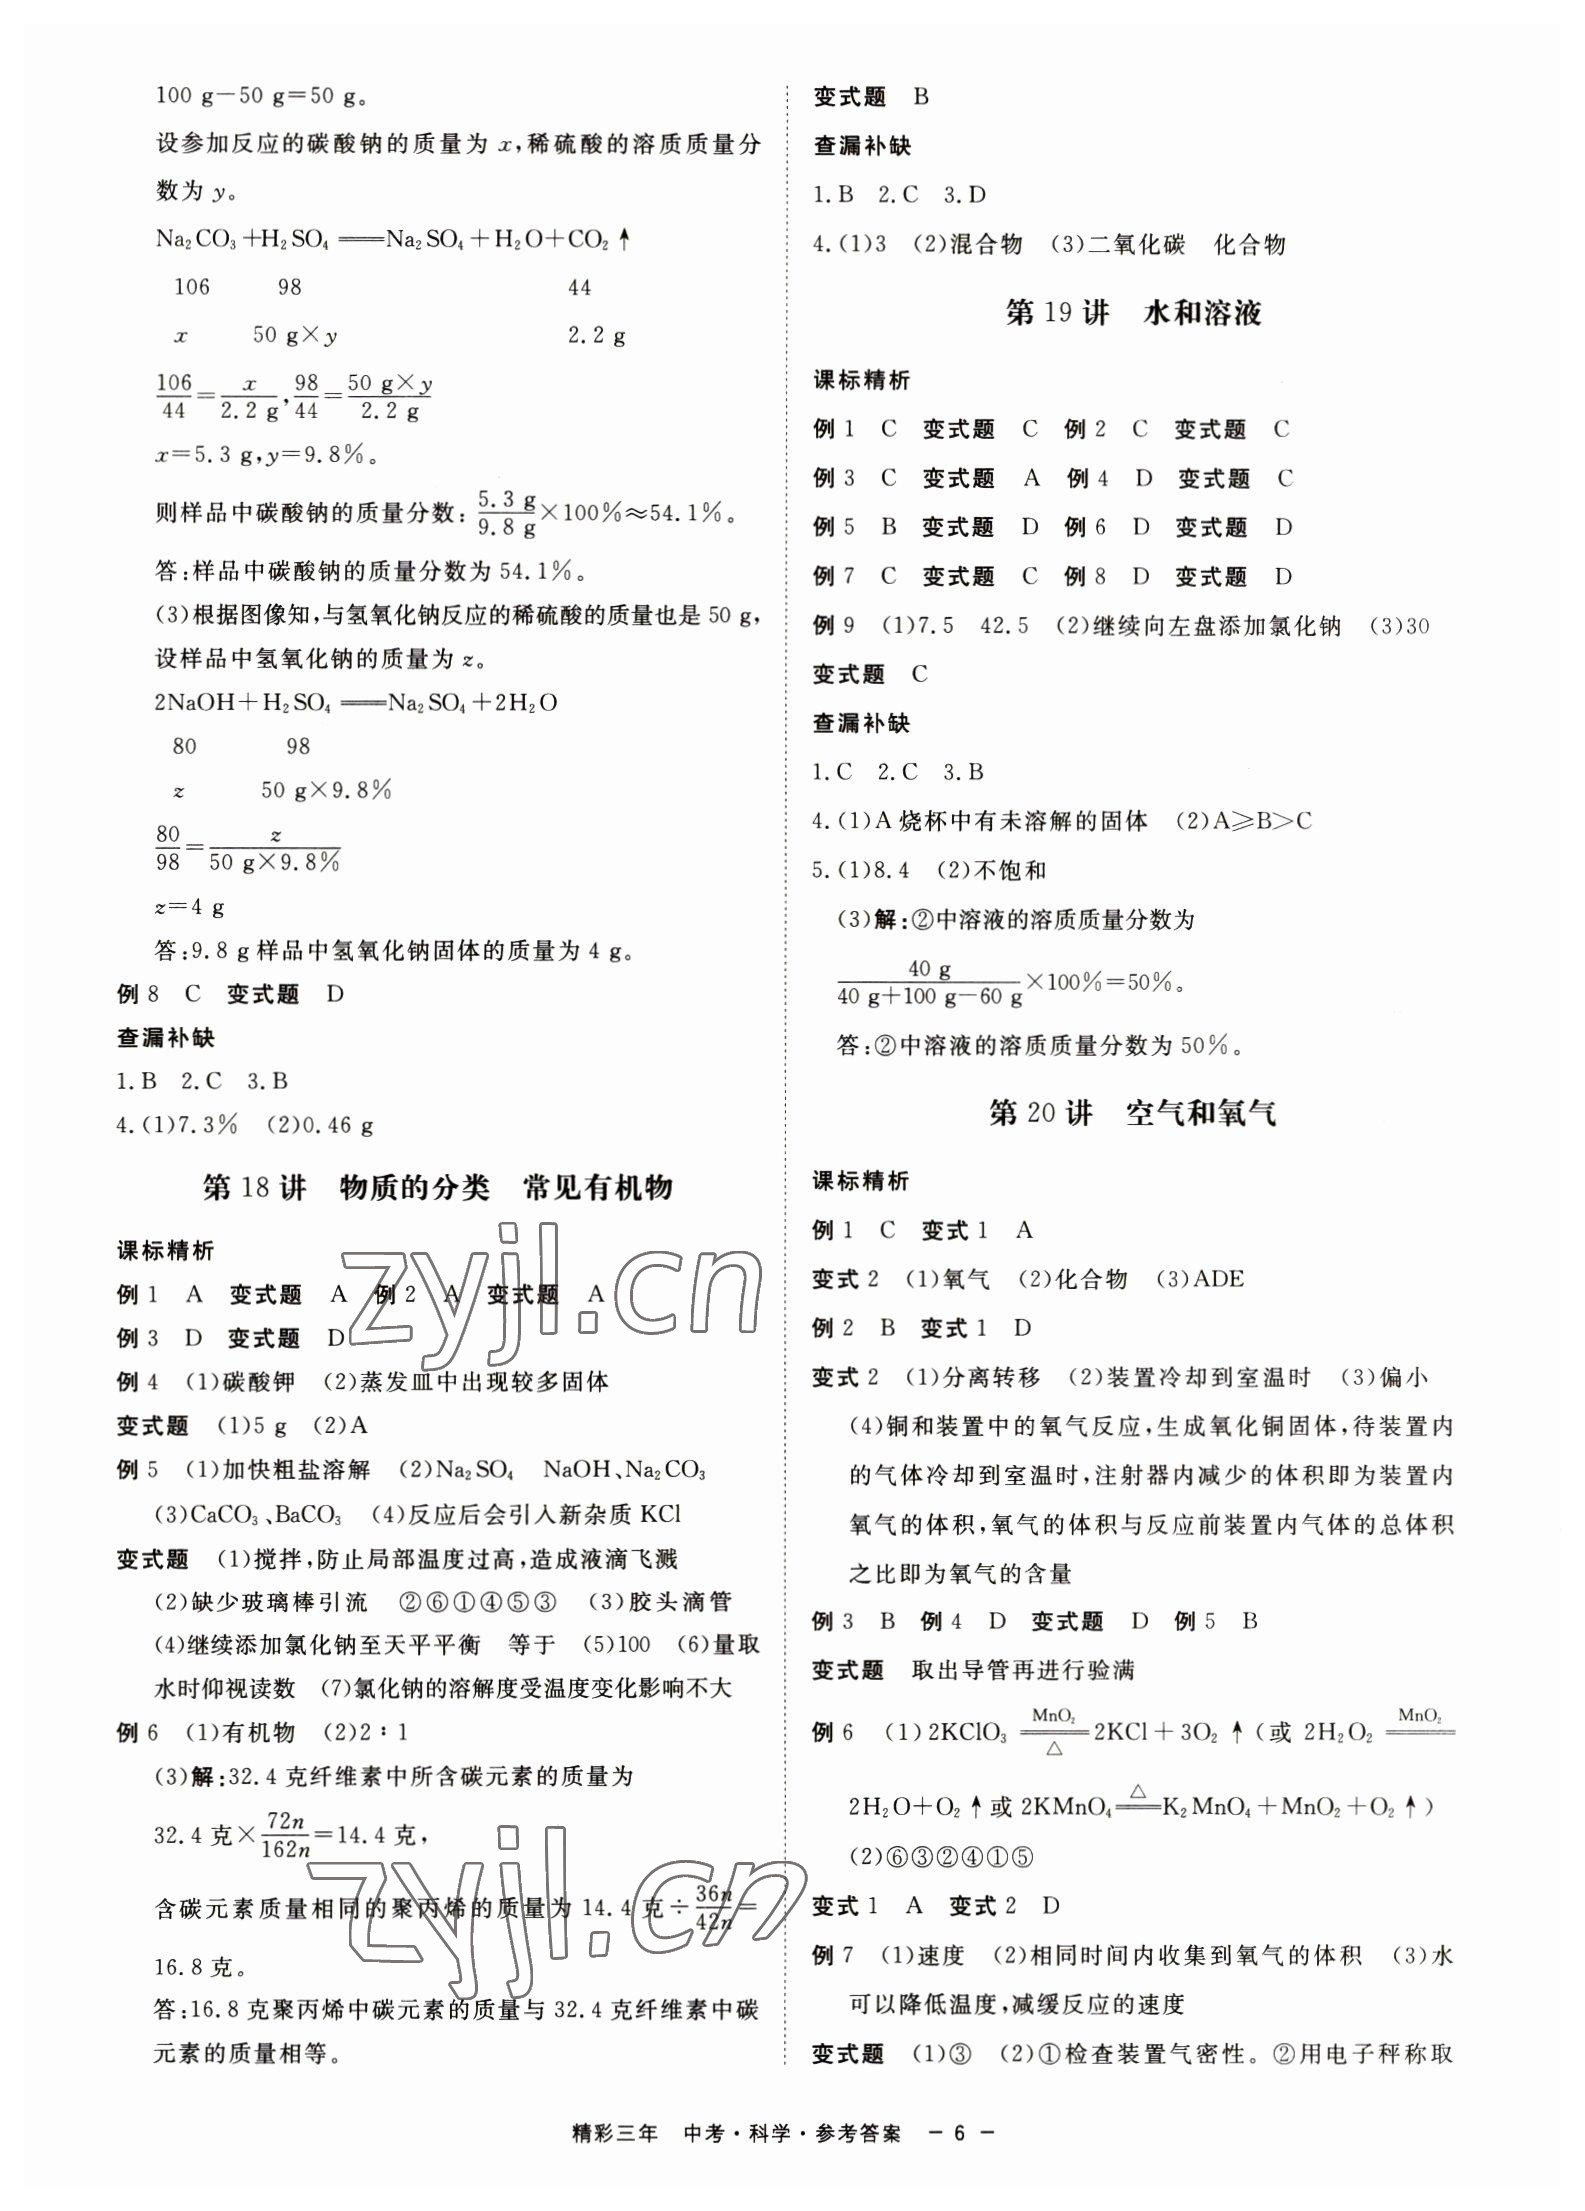 100 g－50 g＝50 g。
设参加反应的碳酸钠的质量为 x，稀硫酸的溶质质量分
数为 y。
Na₂CO₃＋H₂SO₄══Na₂SO₄＋H₂O＋CO₂↑
106 98 44
x 50 g×y 2.2 g
106/44＝x/2.2 g，98/44＝50 g×y/2.2 g
x＝5.3 g，y＝9.8％。
则样品中碳酸钠的质量分数：5.3 g/9.8 g×100％≈54.1％。
答：样品中碳酸钠的质量分数为 54.1％。
(3)根据图像知，与氢氧化钠反应的稀硫酸的质量也是 50 g，
设样品中氢氧化钠的质量为 z。
2NaOH＋H₂SO₄══Na₂SO₄＋2H₂O
80 98
z 50 g×9.8％
80/98＝z/50 g×9.8％
z＝4 g
答：9.8 g 样品中氢氧化钠固体的质量为 4 g。
例 8 C 变式题 D
查漏补缺
1.B 2.C 3.B
4.(1)7.3％ (2)0.46 g
第 18 讲 物质的分类 常见有机物
课标精析
例 1 A 变式题 A 例 2 A 变式题 A
例 3 D 变式题 D
例 4 (1)碳酸钾 (2)蒸发皿中出现较多固体
变式题 (1)5 g (2)A
例 5 (1)加快粗盐溶解 (2)Na₂SO₄ NaOH、Na₂CO₃
(3)CaCO₃、BaCO₃ (4)反应后会引入新杂质 KCl
变式题 (1)搅拌，防止局部温度过高，造成液滴飞溅
(2)缺少玻璃棒引流 ②⑥①④⑤③ (3)胶头滴管
(4)继续添加氯化钠至天平平衡 等于 (5)100 (6)量取
水时仰视读数 (7)氯化钠的溶解度受温度变化影响不大
例 6 (1)有机物 (2)2∶1
(3)解：32.4 克纤维素中所含碳元素的质量为
32.4 克×72n/162n＝14.4 克，
含碳元素质量相同的聚丙烯的质量为 14.4 克÷36n/42n＝
16.8 克。
答：16.8 克聚丙烯中碳元素的质量与 32.4 克纤维素中碳
元素的质量相等。
变式题 B
查漏补缺
1.B 2.C 3.D
4.(1)3 (2)混合物 (3)二氧化碳 化合物
第 19 讲 水和溶液
课标精析
例 1 C 变式题 C 例 2 C 变式题 C
例 3 C 变式题 A 例 4 D 变式题 C
例 5 B 变式题 D 例 6 D 变式题 D
例 7 C 变式题 C 例 8 D 变式题 D
例 9 (1)7.5 42.5 (2)继续向左盘添加氯化钠 (3)30
变式题 C
查漏补缺
1.C 2.C 3.B
4.(1)A 烧杯中有未溶解的固体 (2)A≥B＞C
5.(1)8.4 (2)不饱和
(3)解：②中溶液的溶质质量分数为
40 g/40 g＋100 g－60 g×100％＝50％。
答：②中溶液的溶质质量分数为 50％。
第 20 讲 空气和氧气
课标精析
例 1 C 变式 1 A
变式 2 (1)氧气 (2)化合物 (3)ADE
例 2 B 变式 1 D
变式 2 (1)分离转移 (2)装置冷却到室温时 (3)偏小
(4)铜和装置中的氧气反应，生成氧化铜固体，待装置内
的气体冷却到室温时，注射器内减少的体积即为装置内
氧气的体积，氧气的体积与反应前装置内气体的总体积
之比即为氧气的含量
例 3 B 例 4 D 变式题 D 例 5 B
变式题 取出导管再进行验满
例 6 (1)2KClO₃ MnO₂══△ 2KCl＋3O₂↑(或 2H₂O₂ MnO₂══
2H₂O＋O₂↑或 2KMnO₄ △══K₂MnO₄＋MnO₂＋O₂↑)
(2)⑥③②④①⑤
变式 1 A 变式 2 D
例 7 (1)速度 (2)相同时间内收集到氧气的体积 (3)水
可以降低温度，减缓反应的速度
变式题 (1)③ (2)①检查装置气密性。②用电子秤称取
精彩三年 中考·科学·参考答案 －6－
zyjl.cn
zyjl.cn